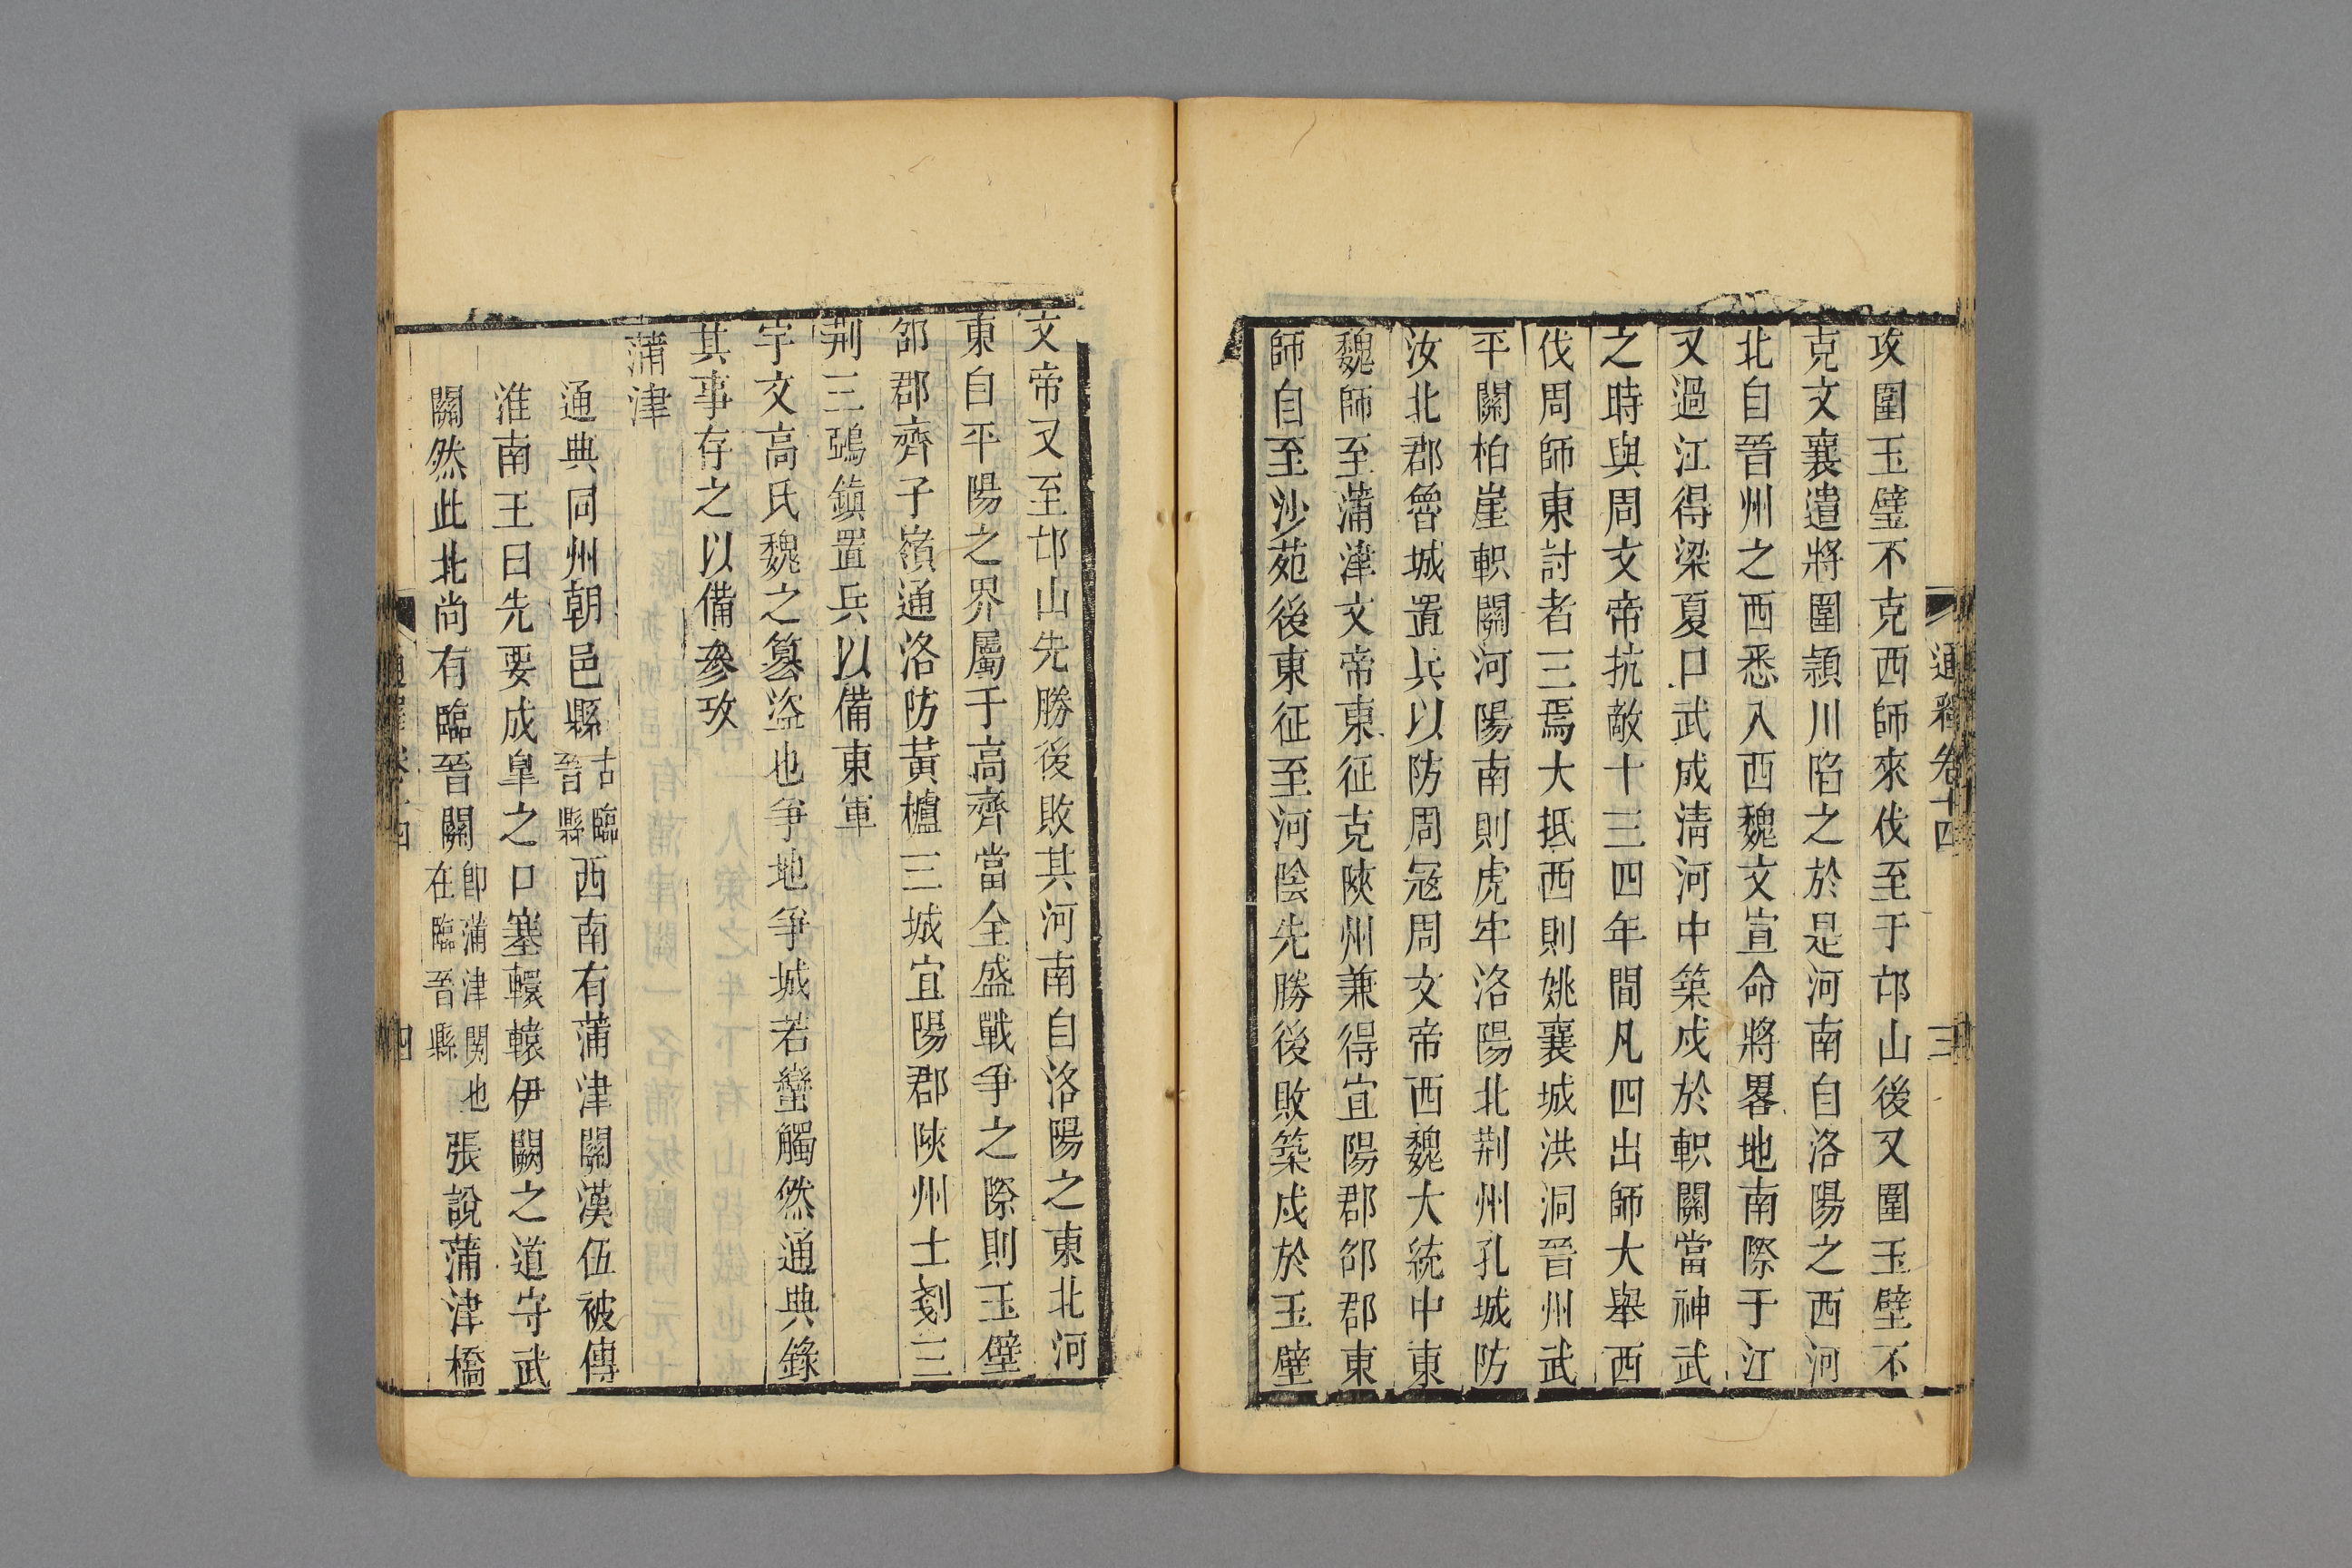 通釋卷十四
三
攻圍玉璧不克西師來伐至于邙山後又圍玉壁不
克文襄遣將圍潁川陷之於是河南自洛陽之西河
北自晉州之西悉入西魏文宣命將畧地南際于江
又過江得梁夏口武成淸河中築戍於軹關當神武
之時與周文帝抗敵十三四年間凡四出師大舉西
伐周師東討者三焉大抵西則姚襄城洪洞晉州武
平關柏崖軹關河陽南則虎牢洛陽北荆州孔城防
汝北郡魯城置兵以防周寇周文帝西魏大統中東
魏師至蒲津文帝東征克陝州兼得宜陽郡邵郡東
師自至沙苑後東征至河陰先勝後敗築戍於玉壁
文帝又至邙山先勝後敗其河南自洛陽之東北河
東自平陽之界屬于高齊當全盛戰爭之際則玉壁
邵郡齊子嶺通洛防黃櫨三城宜陽郡陝州土剗三
荆三鵶鎮置兵以備東軍
宇文高氏魏之簒盜也爭地爭城若蠻觸然通典錄
其事存之以備參攷
蒲津
通典同州朝邑縣古臨晉縣西南有蒲津關漢伍被傳
淮南王曰先要成臯之口塞轘轅伊闕之道守武
關然此北尚有臨晉關卽蒲津関也在臨晉縣張說蒲津橋
四